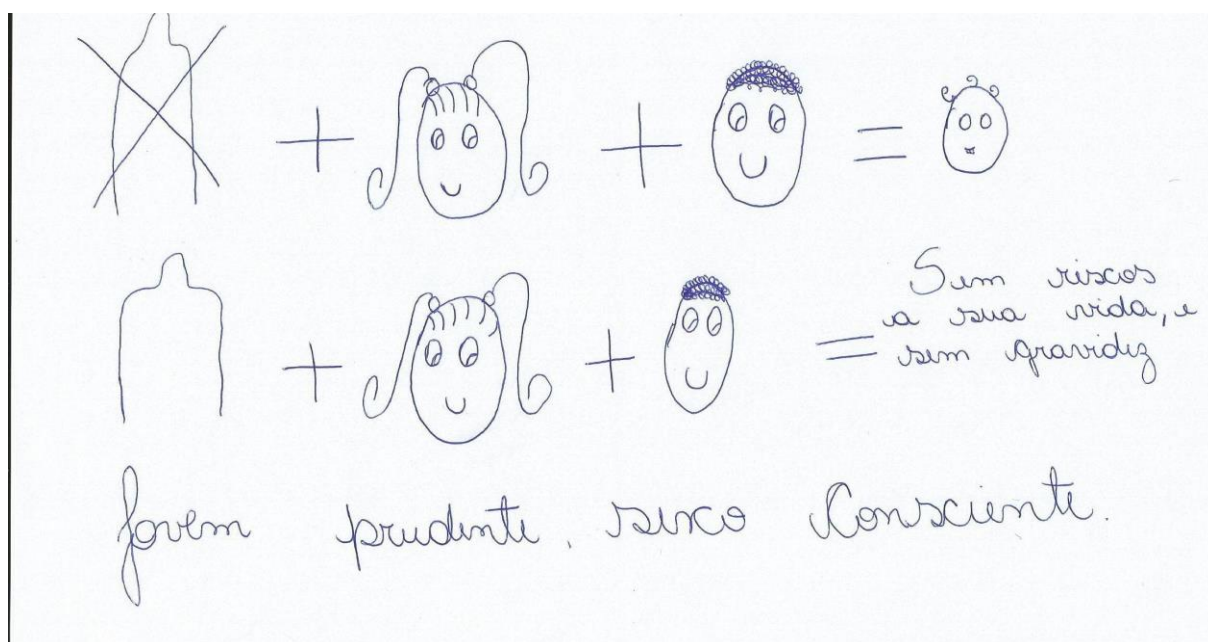 Sem riscos
a sua vida, e
sem gravidez
Jovem prudente, sexo Consciente.